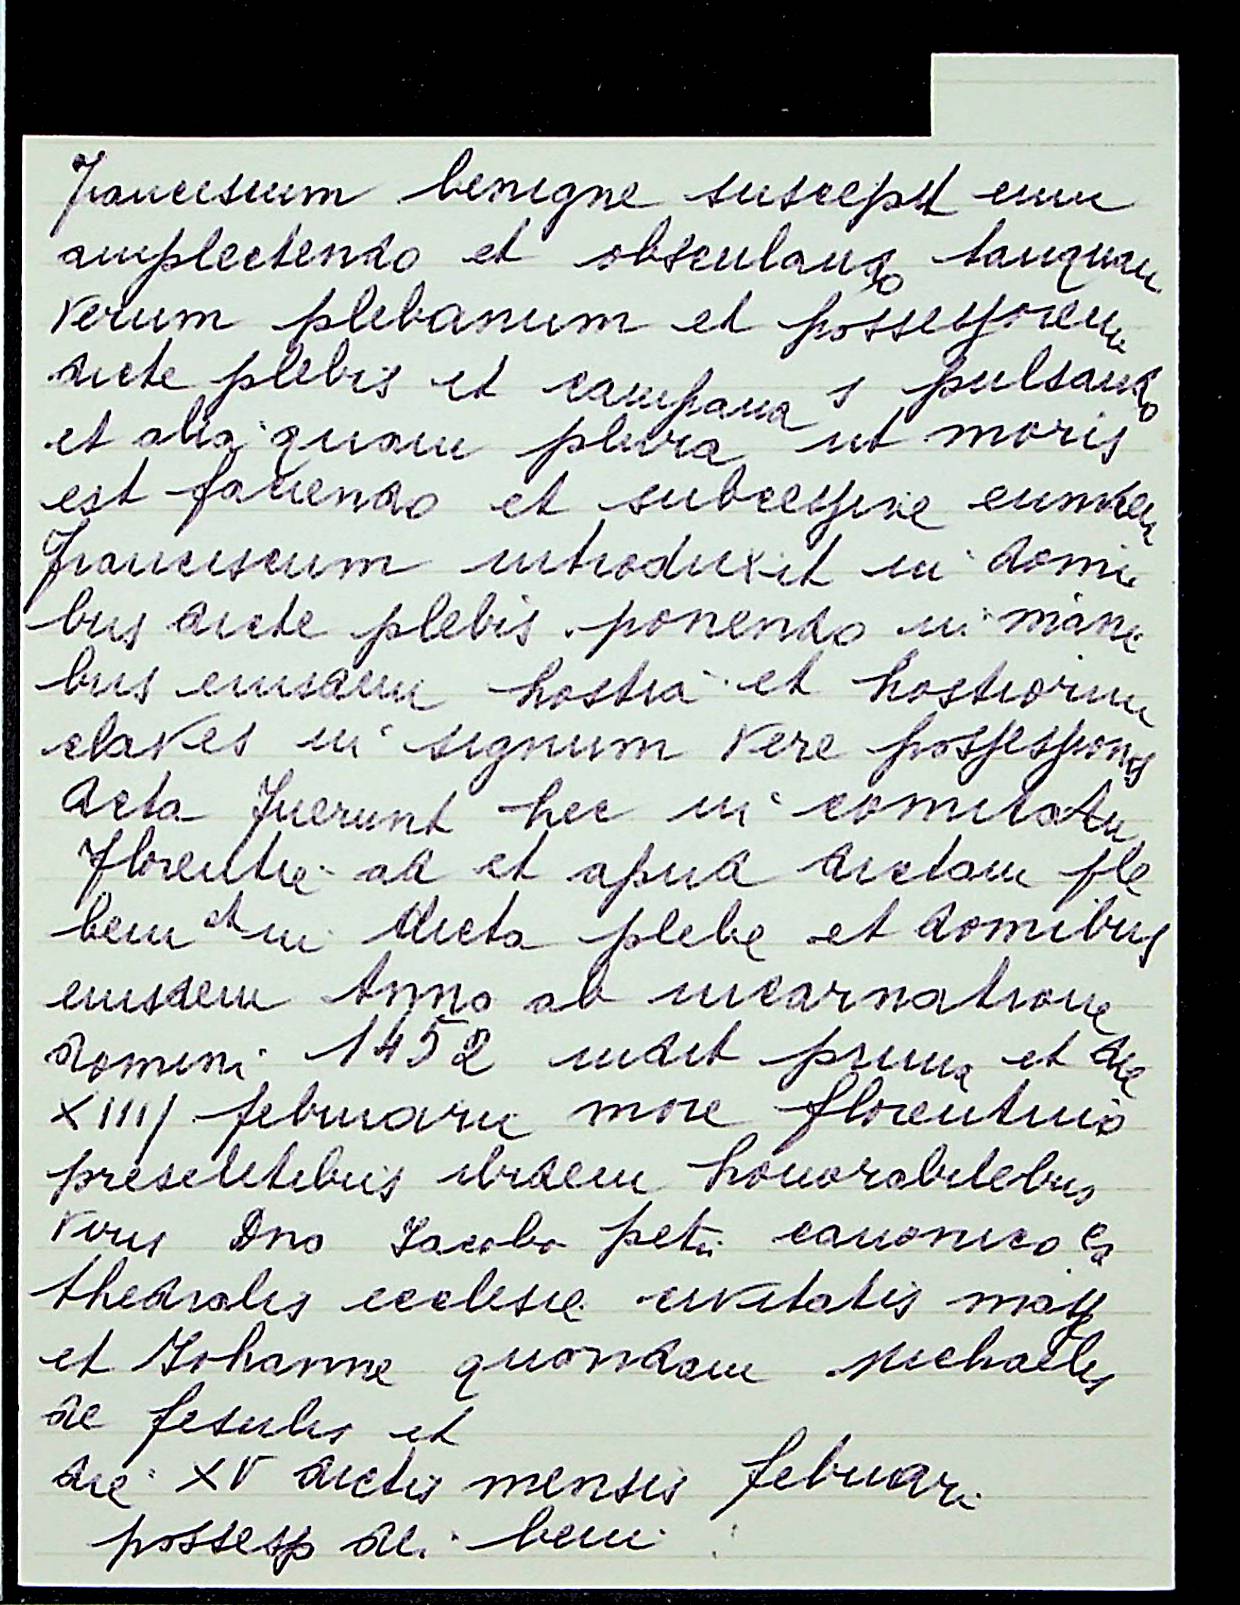 Franciscum benigne suscepit eum
amplectendo et obsculando tanquam
verum plebanum et possessorem
dicte plebis et campana s pulsando
et alia quam plura ut moris
est faciendo et subcessive eumdem
Franciscum introduxit in domi
bus dicte plebis ponendo in mani
bus eiusdem hostia et hostiorum
claves in signum vere possessionis
Acta fuerunt hec in comitatu
Florentie ad et apud dictam ple
bem et in dicta plebe et domibus
eiusdem Anno ab incarnatione
domini 1452 indit prima et die
XIIIJ februarii more florentino
presentibus ibidem honorabilibus
viris Dno Jacobo petri canonico ca
thedralis ecclesie civitatis mass
et Johanne quondam Michaelis
de fesulis et
die XV dictis mensis februari
possessp de bem